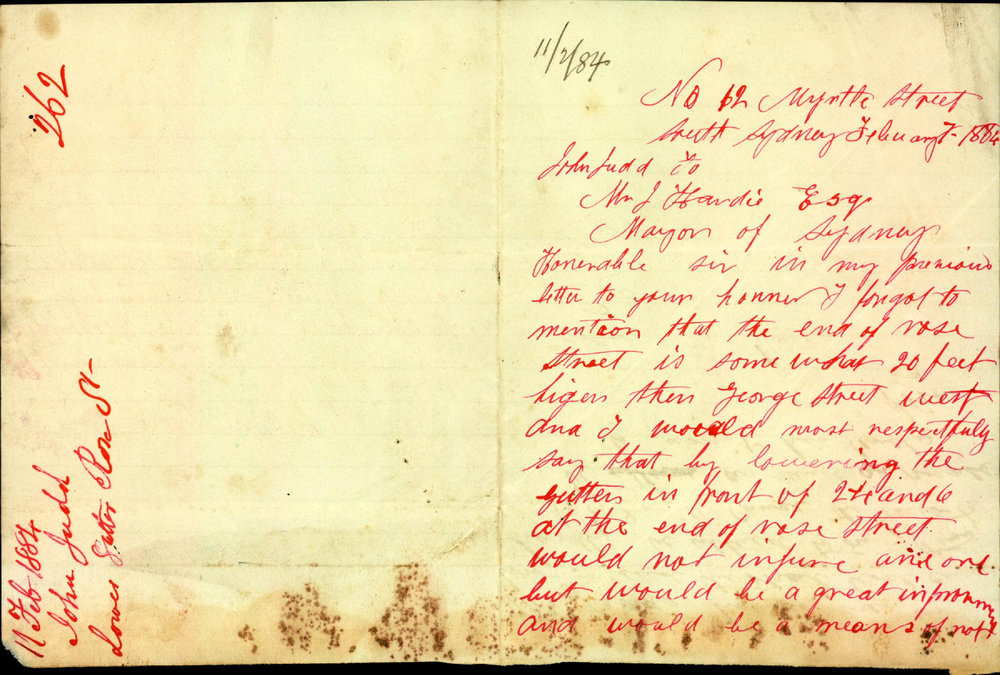 262
11 Feb 1884
John Judd
Lower Gutter Rose St
11/2/84
No 62 Myrtle Street
South Sydney February 7 - 1884
John Judd To
Mr J Hardie Esq
Mayor of Sydney
Honerable sir in my previous
letter to your honner I forgot to
mention that the end of rose
Street is some what 20 feet
higer then George Street west
and I would most respectfuly
say that by lowering the
gutters in front of 2 4 and 6
at the end of rose street
would not injure
but would be a great
and would be a means of not